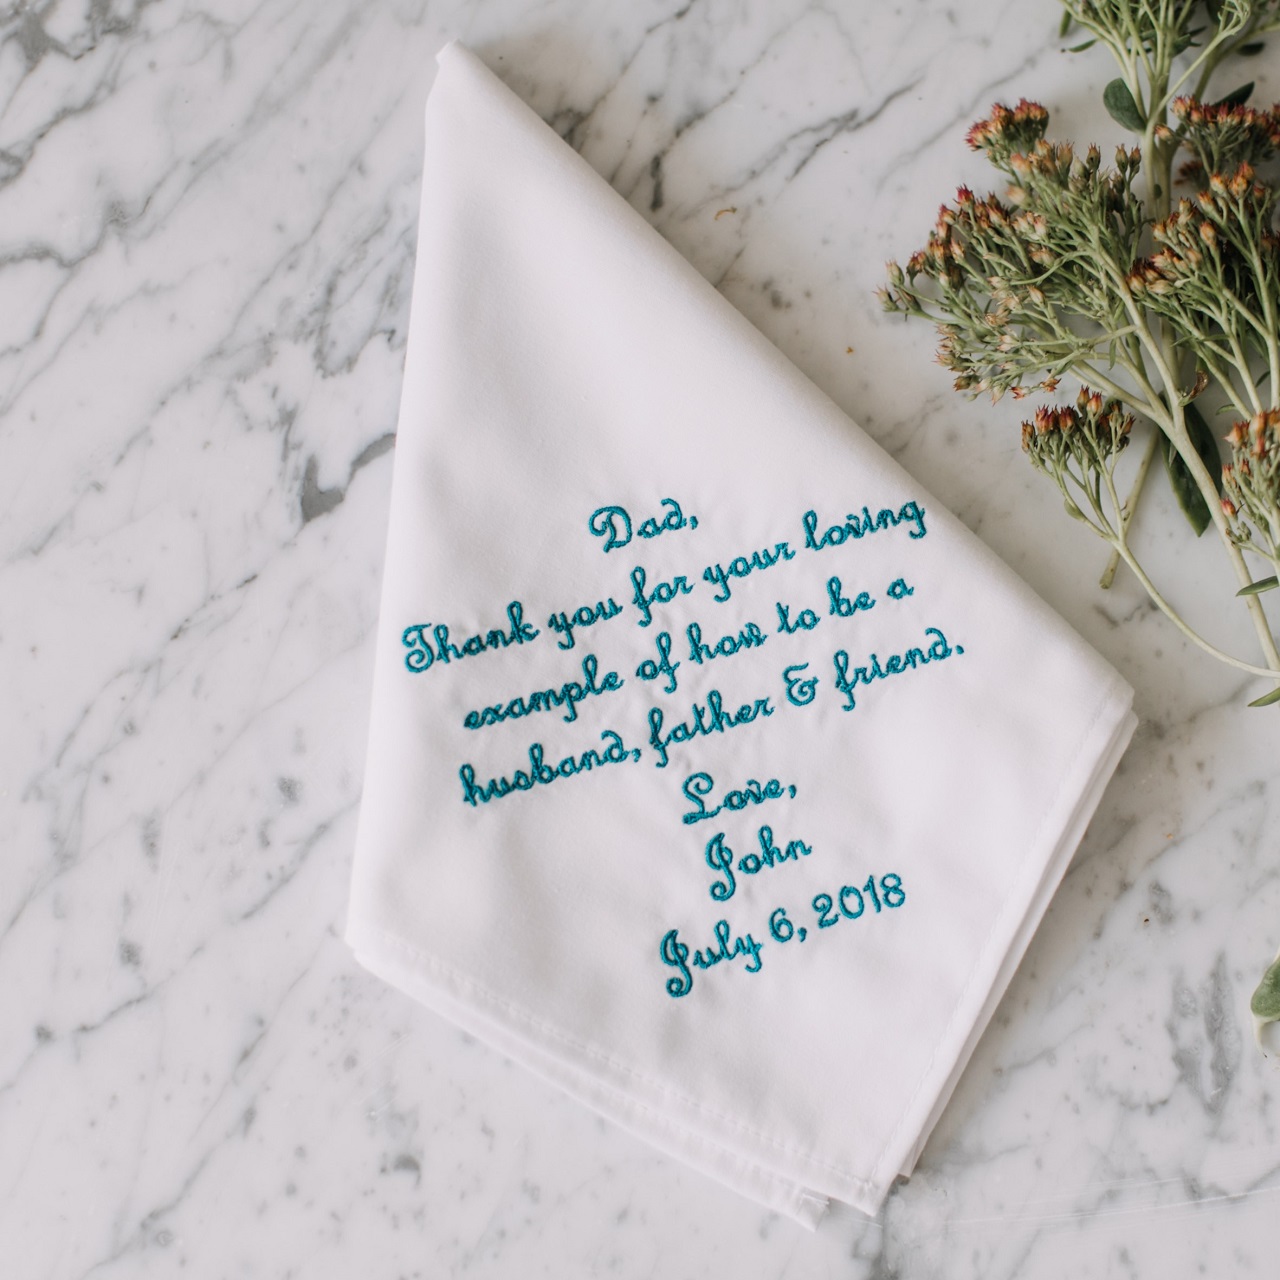 Dad,
Thank you for your loving
example of how to be a
husband, father & friend.
Love,
John
July 6, 2018